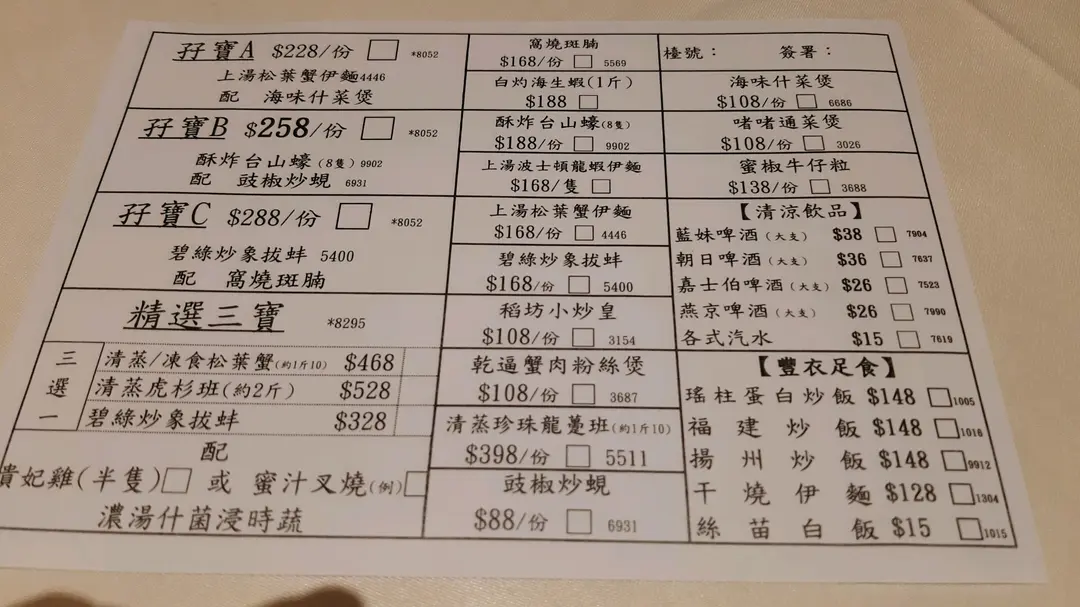 孖寶A $228/份 *8052
上湯松葉蟹伊麵4446
配 海味什菜煲
孖寶B $258/份 *8052
酥炸台山蠔(8隻)9902
配 豉椒炒蜆 6931
孖寶C $288/份 *8052
碧綠炒象拔蚌 5400
配 窩燒斑腩
精選三寶 *8295
三選一
清蒸/凍食松葉蟹(約1斤10) $468
清蒸虎杉班(約2斤) $528
碧綠炒象拔蚌 $328
配
貴妃雞(半隻) 或 蜜汁叉燒(例)
濃湯什菌浸時蔬
窩燒斑腩
$168/份 5569
白灼海生蝦(1斤)
$188
酥炸台山蠔(8隻)
$188/份 9902
上湯波士頓龍蝦伊麵
$168/隻
上湯松葉蟹伊麵
$168/份 4446
碧綠炒象拔蚌
$168/份 5400
稻坊小炒皇
$108/份 3154
乾逼蟹肉粉絲煲
$108/份 3687
清蒸珍珠龍躉班(約1斤10)
$398/份 5511
豉椒炒蜆
$88/份 6931
檯號: 簽署:
海味什菜煲
$108/份 6686
啫啫通菜煲
$108/份 3026
蜜椒牛仔粒
$138/份 3688
【清涼飲品】
藍妹啤酒(大支) $38 7904
朝日啤酒(大支) $36 7637
嘉士伯啤酒(大支) $26 7523
燕京啤酒(大支) $26 7990
各式汽水 $15 7619
【豐衣足食】
瑤柱蛋白炒飯 $148 1005
福建炒飯 $148 1016
揚州炒飯 $148 9912
干燒伊麵 $128 1304
絲苗白飯 $15 1015